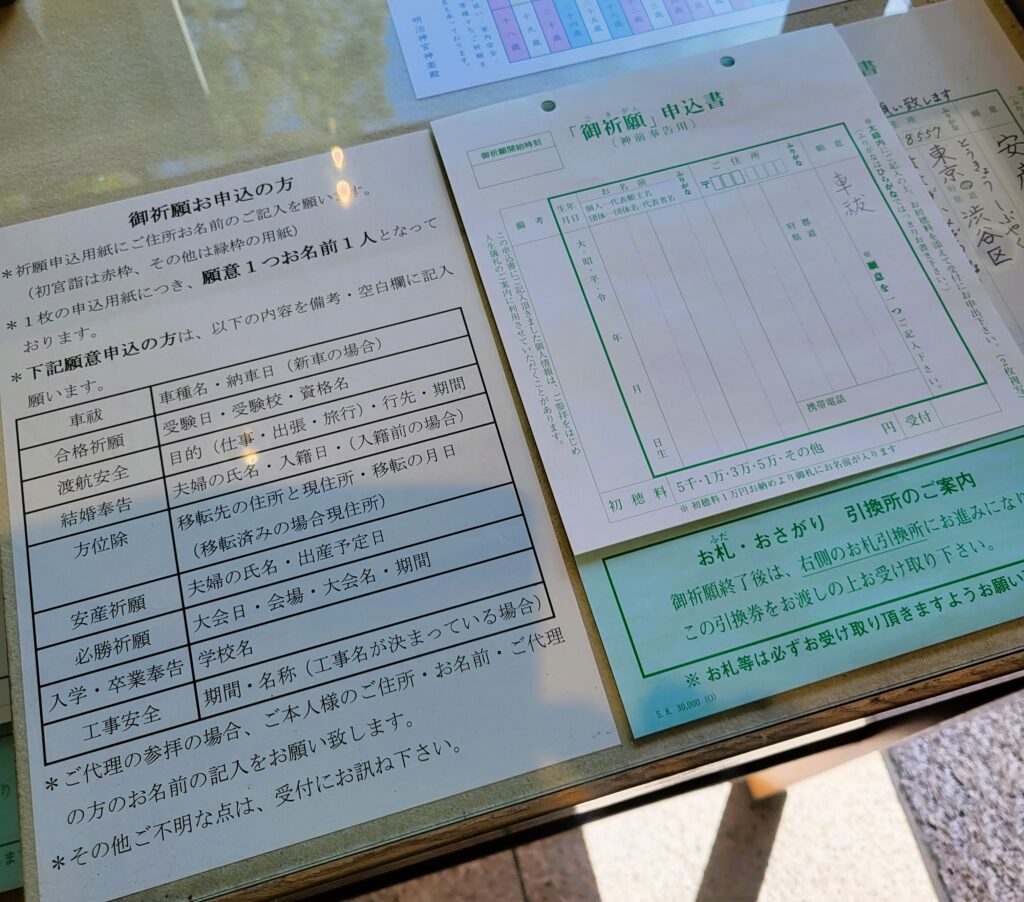 御祈願お申込の方
＊祈願申込用紙にご住所お名前のご記入を願います。
（初宮詣は赤枠、その他は緑枠の用紙）
＊１枚の申込用紙につき、願意１つお名前１人となって
おります。
＊下記願意申込の方は、以下の内容を備考・空白欄に記入
願います。
車祓 車種名・納車日（新車の場合）
合格祈願 受験日・受験校・資格名
渡航安全 目的（仕事・出張・旅行）・行先・期間
結婚奉告 夫婦の氏名・入籍日・（入籍前の場合）
方位除 移転先の住所と現住所・移転の月日
（移転済みの場合現住所）
安産祈願 夫婦の氏名・出産予定日
必勝祈願 大会日・会場・大会名・期間
入学・卒業奉告 学校名
工事安全 期間・名称（工事名が決まっている場合）
＊ご代理の参拝の場合、ご本人様のご住所・お名前・ご代理
の方のお名前の記入をお願い致します。
＊その他ご不明な点は、受付にお訊ね下さい。
明治神宮神楽殿
十八歳
十九歳
「御祈願」申込書
ごきがん
〔神前奉告用〕
御祈願開始時刻
※太線内をご記入の上、お初穂料を添えて受付にお申出下さい。
（ふりがなはひらがなではっきりお書き下さい）
（2枚複写）
願意
車祓
※願意を一つご記入下さい。
ふりがな
ご住所
〒
都道
府県
携帯電話
ふりがな
お名前
個人－代表願主名
団体－団体名・代表者名
生年
月日
大・昭・平・令
年
月
日生
備考
この申込書にご記入頂きました個人情報は、ご参拝をはじめ
人生儀礼のご案内に利用させていただくことがあります。
初穂料 5千・1万・3万・5万・その他 円 受付
※ 初穂料１万円お納めより御札にお名前が入ります
書
願い致します
願意
安産
ふりがな
所
8557
とうきょう
東京
渋谷区
お札・おさがり 引換所のご案内
ふだ
御祈願終了後は、右側のお札引換所にお進みになり
この引換券をお渡しの上お受け取り下さい。
※ お札等は必ずお受け取り頂きますようお願い
5. 8. 30,000 (O)